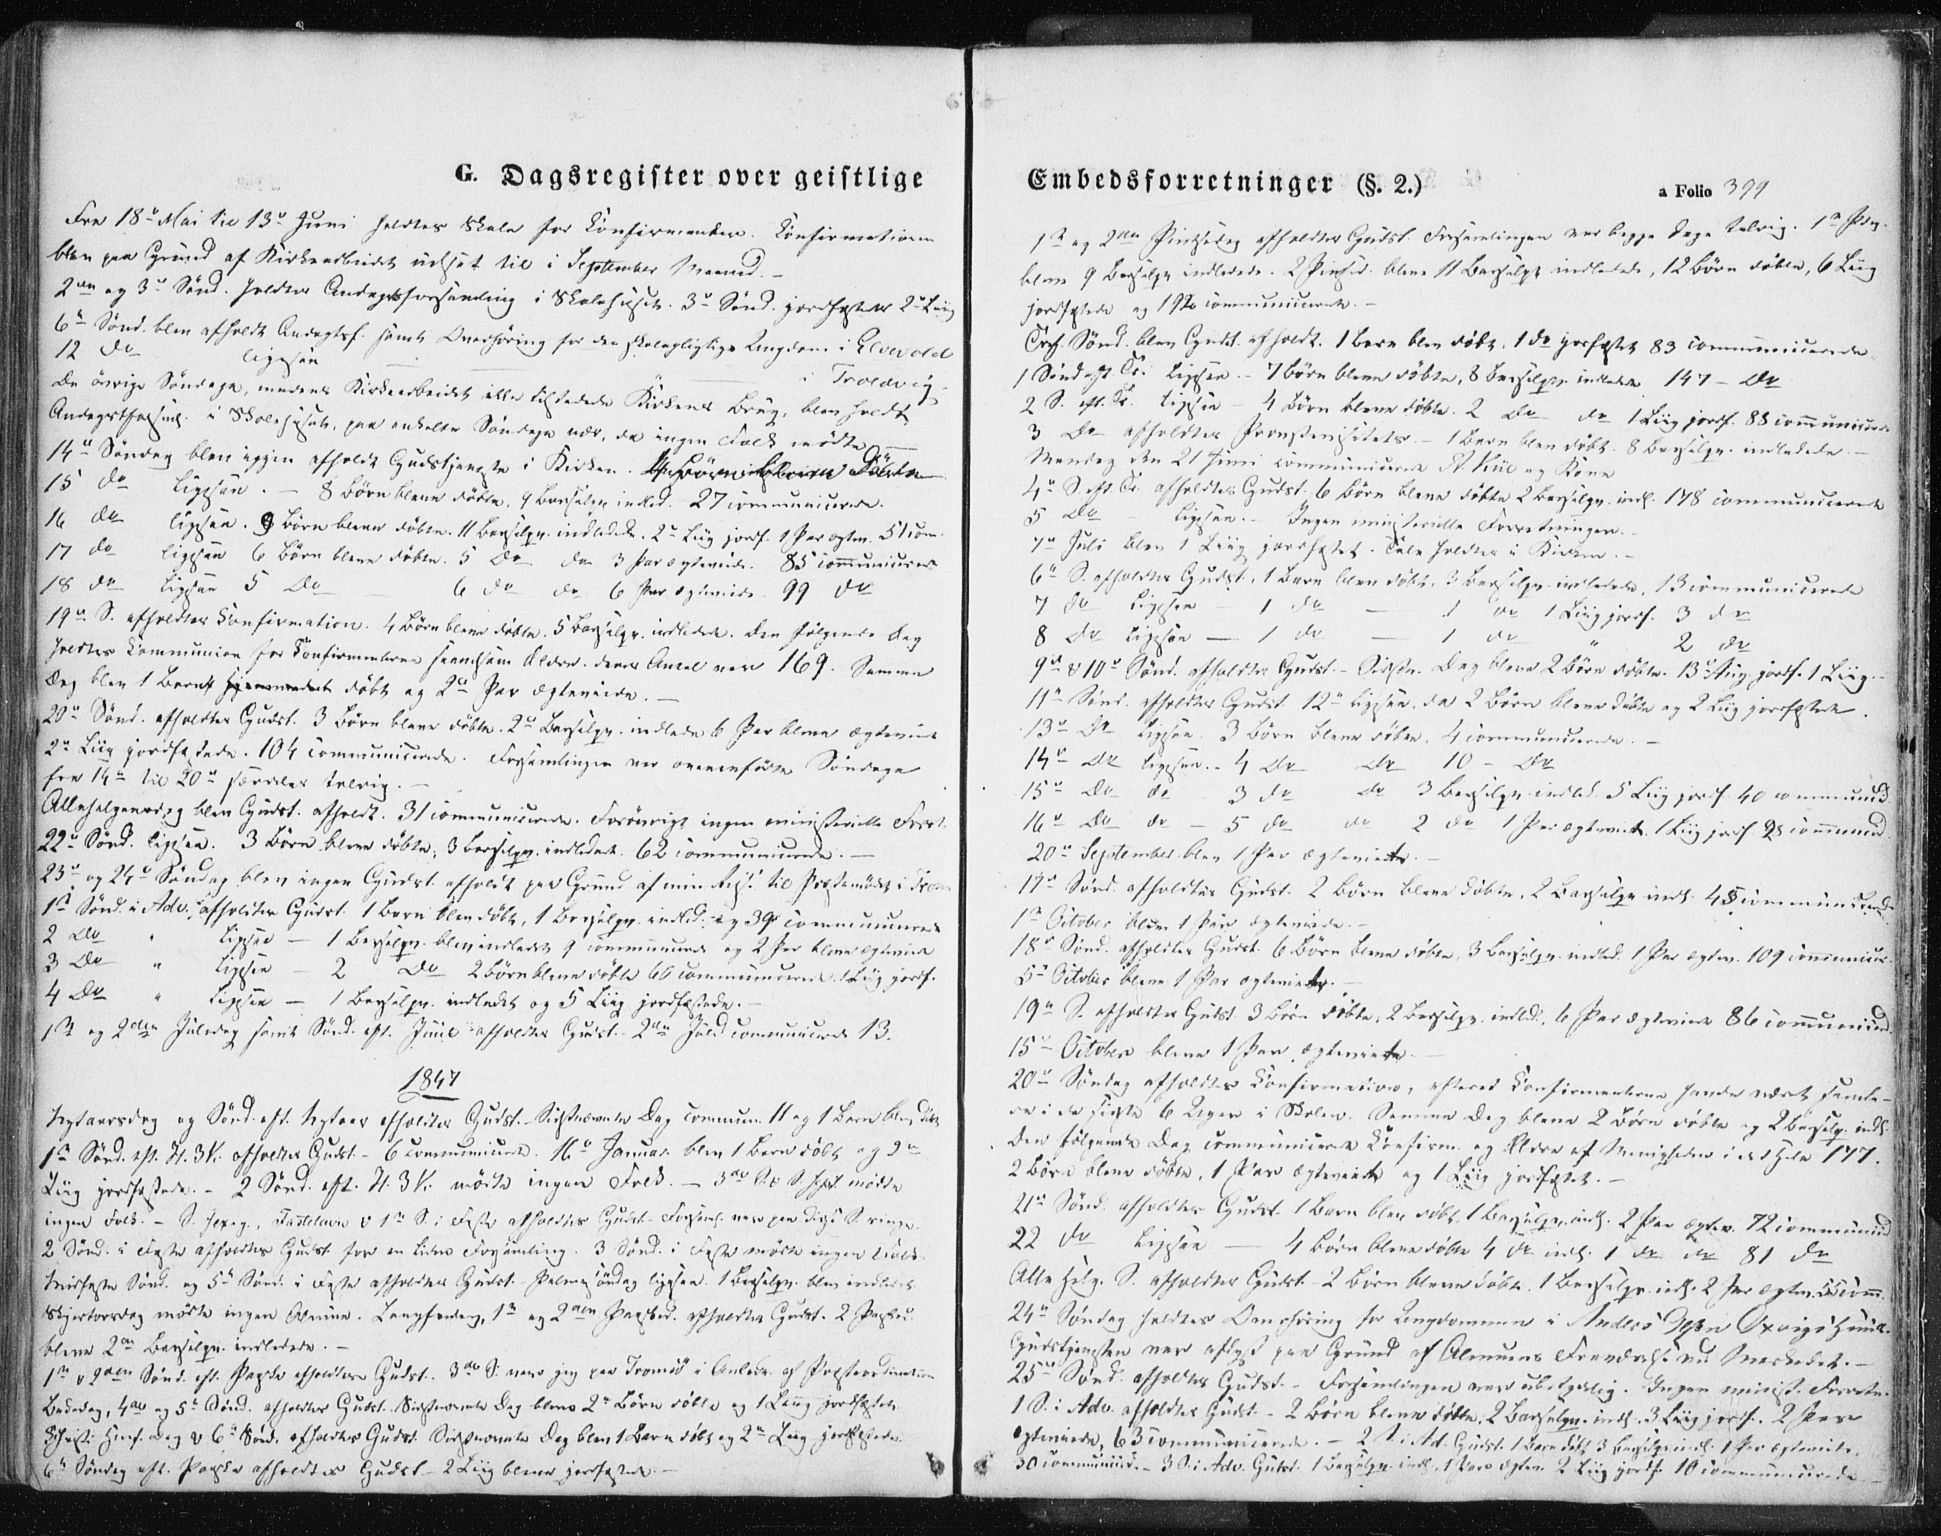 G. Dagsregister over geistlige
Fra 18de Mai til 13de Juni holdtes Skole for Konfirmanter. Konfirmationen
blev paa Grund af Kirkearbeidet udsat til i September Maaned. –
2den og 3de Sønd. holdtes Andagtsforsamling i Skolehuset. 3de Sønd. jordfæstedes 2de Liig
6te Sønd. blev afholdt Andagtsf. samt Overhøring for den skolepligtige Ungdom i Elvevold
12 do ligesaa i Troldvig
De øvrige Søndage, medens Kirkearbeidet ikke tilstedede Kirkens Brug, blev holdt
Andagtsforsml. i Skolehuset, paa enkelte Søndage nær, da ingen Folk mødte
14de Søndag blev igjen afholdt Gudstjeneste i Kirken.
15 do ligesaa. – 8 Børn bleve døbte, 9 Barselqv. indled. 27 communicerede.
16 do ligesaa. 9 Børn bleve døbte. 11 Barselqv. indledede. 2de Liig jordf. 1 Par egtev. 51 com.
17 do ligesaa 6 Børn bleve døbte. 5 do do 3 Par egteviede. 85 communicerede
18 do ligesaa 5 do 6 do do 6 Par egteviede. 99 do
19de S. afholdtes Konfirmation. 4 Børn bleve døbte. 5 Barselqv. indledede. Den følgende Dag
holdtes Communion for Konfirmanterne samt Ældre. deres Antal var 169. Samme
Dag blev 1 Barn døbt og 2de Par egteviede. –
20de Sønd. afholdtes Gudst. 3 Børn bleve døbte. 2de Barselqv. indledede 6 Par bleve egteviede
2de Liig jordfæstede. 104 communicerede. Forsamlingen var ovennævnte Søndage
fra 14de til 20de særdeles talrig. –
Allehelgensdag blev Gudst. afholdt. 31 communicerede. Forøvrigt ingen ministerielle Forret.
22de Sønd. ligesaa. 3 Børn bleve døbte, 3 Barselqv. indledet. 62 communicerede. –
23de og 24de Søndag blev ingen Gudst. afholdt paa Grund af min Reise til Præstemødet i
1ste Sønd. i Adv. afholdtes Gudst. 1 Barn blev døbt, 1 Barselqv. indled. og 39 communicerede
2 do " ligesaa – 1 Barselqv. blev indledet 9 communicerede og 2 Par bleve egteviede
3 do " ligesaa – 2 do 2 Børn bleve døbte 66 communicerede 1 Liig jordf.
4 do " ligesaa – 1 Barselqv. indledet og 5 Liig jordfæstede. –
1ste og 2den Juledag samt Sønd. eft. Juul afholdtes Gudst. – 2den Juled communicerede 13.
1847
Nytaarsdag og Sønd. eft. Nytaar afholdtes Gudst. – Sidstnævnte Dag commun. 11 og 1 Barn blev døbt
1ste Sønd. eft. H. 3 K. afholdtes Gudst. – 6 communicerede. 16de Januar blev 1 Barn døbt og 2de
Liig jordfæstede. – 2 Sønd. eft. H. 3 K. mødte ingen Folk. – mødte
ingen Folk. – S. Sexag., Fastelavn & 1ste S. i Faste afholdtes Gudst. Forsaml. var paa disse S. ringe.
2 Sønd. i Faste afholdtes Gudst. for en liden Forsamling. 3 Sønd. i Faste mødte ingen Folk.
Midfaste Sønd. og 5te Sønd. i Faste afholdtes Gudst. – Palmesøndag ligesaa. 1 Barselqv. blev indledet
Skjertorsdag mødte ingen Almue. Langfredag, 1ste og 2den Paasked. afholdtes Gudst. 2 Paasked.
bleve 2de Barselqv. indledede. –
1ste & 2den Sønd. eft. Paaske afholdtes Gudst. 3die S. var jeg paa Tromsø i Anledn. af Præsteordination
Bededag, 4de og 5te Sønd. afholdtes Gudst. Sidstnævnte Dag bleve 2de Børn døbte og 1 Liig jordfæstet.
Christi Himf. Dag & 6te Sønd. afholdtes Gudst. Sidstnævnte Dag blev 1 Barn døbt og 2de Liig jordfæstede.
6te Søndag eft. Paaske afholdtes Gudst – 2 Liig bleve jordfæstede. –
Embedsforretninger (§. 2.)
a Folio 399
1ste og 2den Pintsedag afholdtes Gudst. Forsamlingen var begge Dage talrig. 1ste Pdag.
bleve 9 Barselqv. indledede. 2 Pintsed. bleve 11 Barselqv. indledede, 12 Børn døbte, 6 Liig
jordfæstede og communicerede. –
Tref. Sønd. blev Gudst. afholdt. 1 Barn blev døbt. 1 do jordfæstet 83 communicerede
1 Sønd. eft. Tr. ligesaa. – 7 Børn bleve døbte, 8 Barselqv. indledede 147 – do
2 S. eft. Tr. ligesaa – 4 Børn bleve døbte. 2 do do 1 Liig jordf. 88 communicerede
3 do afholdtes Provstevisitats. – 1 Barn blev døbt. 8 Barselqv. indledede. –
Mandag den 21 Juni communicerede og Kone
4de S. eft. Tr. afholdtes Gudst. 6 Børn bleve døbte 2 Barselqv. indl. 178 communicerede
5 do – ligesaa. – Ingen ministerielle Forretninger. –
7de Juli blev 1 Liig jordfæstet. Tale holdtes i Kirken. –
6te S. afholdtes Gudst., 1 Barn blev døbt, 3 Barselqv. indledede, 13 communicerede
7 do ligesaa – 1 do – 1 do 1 Liig jordf. 3 do
8 do ligesaa – 1 do – 1 do " 2 do
9de & 10de Sønd. afholdtes Gudst. – Sidstn. Dag bleve 2 Børn døbte. 13de Aug. jordf. 1 Liig. –
11te Sønd. afholdtes Gudst. 12te ligesaa, da 2 Børn bleve døbte og 2 Liig jordfæstede.
13de do ligesaa. 3 Børn bleve døbte. 4 communicerede. –
14de do ligesaa. – 4 do do 10 – do
15de do do 3 do do 3 Barselqv. indled. 5 Liig jordf. 40 communicd.
16de do do – 5 do do 2 do 1 Par egteviet. 1 Liig jordf. 28 communicd.
20de September blev 1 Par egteviet. –
17de Sønd. afholdtes Gudst. 2 Børn bleve døbte, 2 Barselqv. indl. 48 communicerede
1ste October blev 1 Par egteviede. –
18de Sønd. afholdtes Gudst. 6 Børn bleve døbte, 3 Barselqv. indled. 1 Par egtev. 109 communicer.
5te October bleve 1 Par egteviede. –
19de S. afholdtes Gudst. 3 Børn døbte, 2 Barselqv. indled., 6 Par egteviede 86 communiced.
15de October bleve 1 Par egteviede. –
20de Søndag afholdtes Konfirmation, efterat Konfirmanterne havde været samle-
de i de sidste 6 Uger i Skolen. Samme Dag bleve 2 Børn døbte og 2 Barselqv. indl.
Den følgende Dag communicerede Konfirm. og Ældre af Menigheden i det Hele 177.
2 Børn bleve døbte, 1 Par egteviede og 1 Liig jordfæstet. –
21de Sønd. afholdtes Gudst. 1 Barn blev døbt, 1 Barselqv. indl. 2 Par egtev. 72 communicd
22 do ligesaa – 4 Børn bleve døbte 4 do indl. 1 do do 81 do
Alle Helg. S. afholdtes Gudst. – 2 Børn bleve døbte. 1 Barselqv. indl. 2 Par egtev. comm.
24de Søndag holdtes Overhøring for Ungdommen i Anders Huus.
Gudstjenesten var aflyst paa Grund af Almuens Markedet. –
25de Sønd. afholdtes Gudst. – Forsamlingen var ubetydelig. Ingen minist. Forretn.
1 S. i Adv. afholdtes Gudst. – 2 Børn bleve døbte, 2 Barselqv. indl. 3 Liig jordf. 2 Par
egteviede, 63 communicerede. – 2 S. i Ad. Gudst. 1 Barn døbt 3 Barselqv. indl. 1 Par egteviede,
30 communiced. – 3 S. i Adv. Gudst. 1 Barselqv. indl. 1 Par egtev. 2 Liig jordf. 10 communicerede